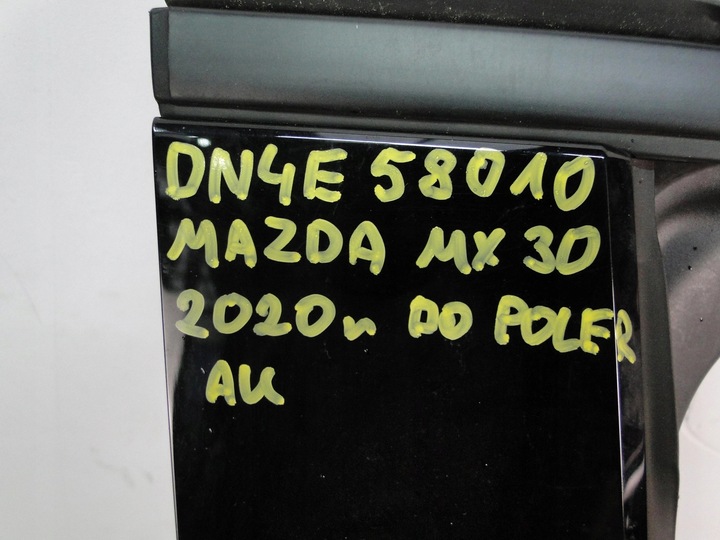 DN4E 58010
MAZDA MX 30
2020r DO POLER
AK